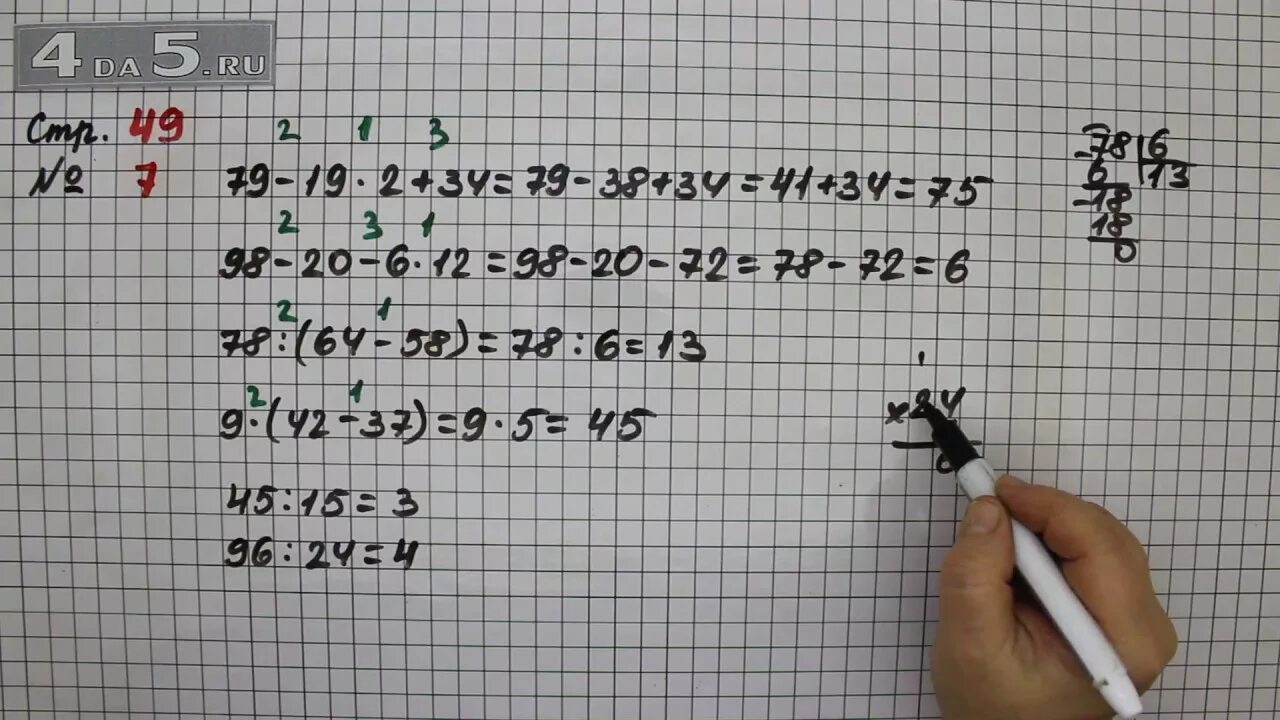 4DA5.RU
Стр. 49
№ 7
2 1 3
79-19·2+34=79-38+34=41+34=75
2 3 1
98-20-6·12=98-20-72=78-72=6
2 1
78:(64-58)=78:6=13
2 1
9·(42-37)=9·5=45
45:15=3
96:24=4
-78|6
6 13
-18
18
0
1
×24
6